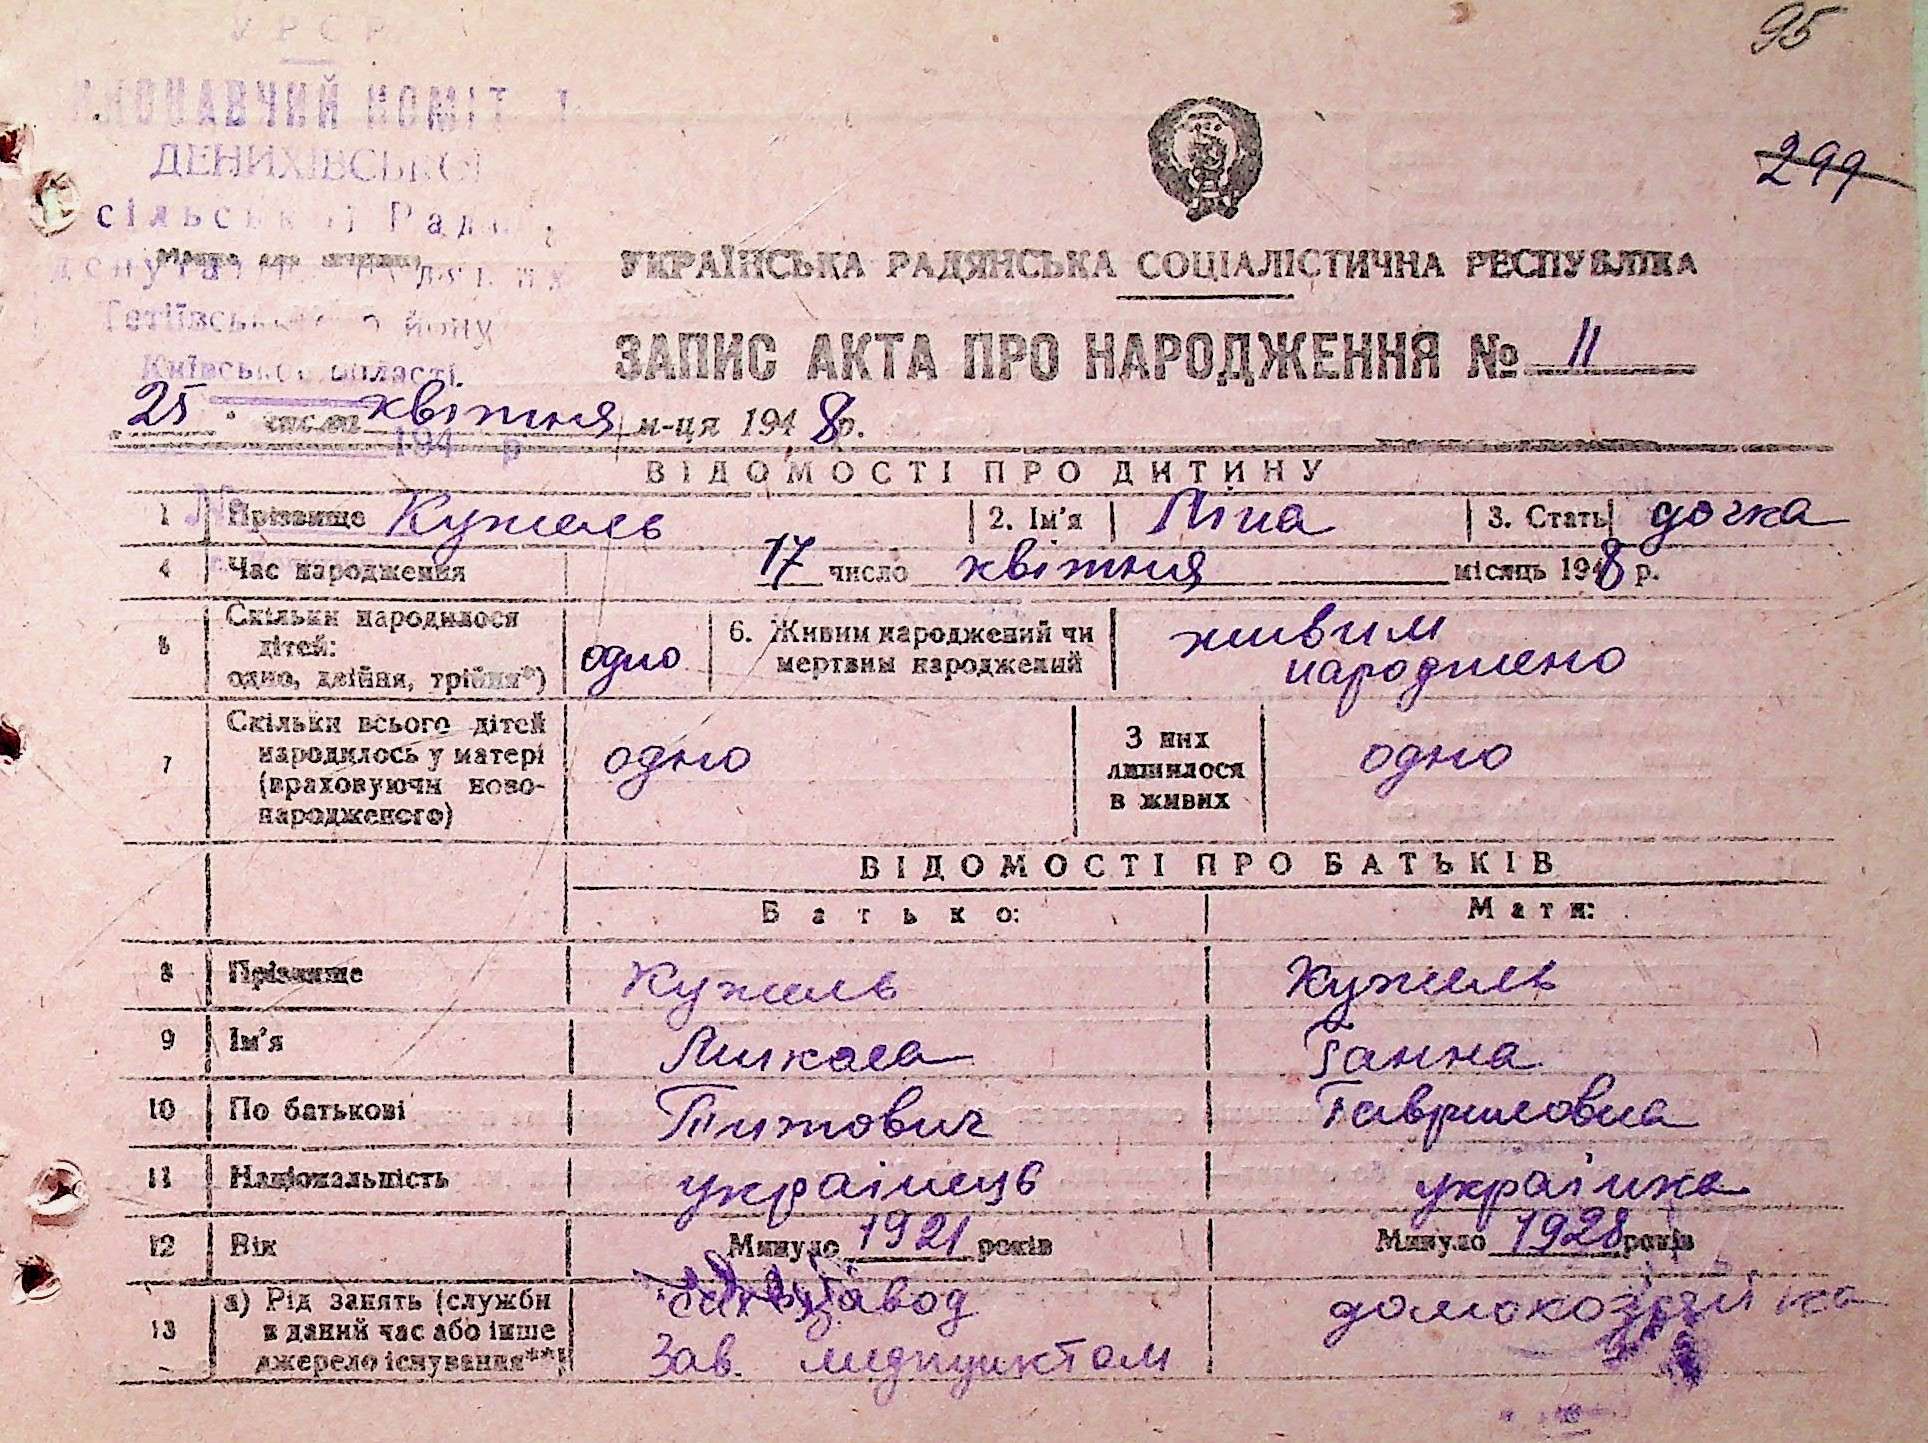 95
УРСР
ДЕНИХІВСЬКОЇ
сільської Ради
299
УКРАЇНСЬКА РАДЯНСЬКА СОЦІАЛІСТИЧНА РЕСПУБЛІКА
району
Київської області
ЗАПИС АКТА ПРО НАРОДЖЕННЯ № 11
25 числа квітня м-ця 1948 р.
194 р
ВІДОМОСТІ ПРО ДИТИНУ
1 Прізвище Кужель 2. Ім'я Ліна 3. Стать дочка
4 Час народження 17 число квітня місяць 1948 р.
5 Скільки народилося дітей: одно, двійня, трійня*) одно 6. Живим народжений чи мертвим народжений живим народжено
7 Скільки всього дітей народилось у матері (враховуючи новонародженого) одно З них лишилося в живих одно
ВІДОМОСТІ ПРО БАТЬКІВ
Батько: Мати:
8 Прізвище Кужель Кужель
9 Ім'я Микола Ганна
10 По батькові Титович Гавриловна
11 Національність українець українка
12 Вік Минуло 1921 років Минуло 1928 років
13 а) Рід занять (служби в даний час або інше джерело існування**) завод домохозяйка
Зав. медпунктом